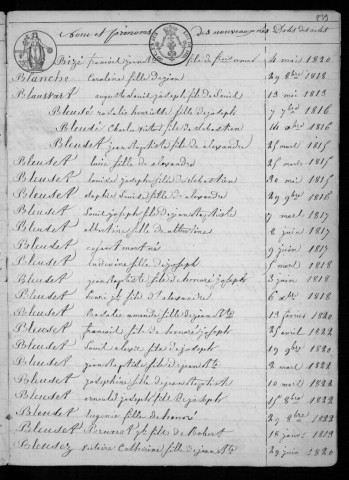 Nom et prénoms des nouveaux nés Date des actes
Bizé fils de 4 mai 1820
Blanche Caroline fille de jean 29 8bre 1818
Blansvart joseph fils de 13 mai 1813
Bleudé rosalie henriette fille de joseph 7 7bre 1816
Bleudé Charles victor fils de sebastien 14 xbre 1816
Bleudet jean Baptiste fils de alexandre 25 mars 1815
Bleudet fille de alexandre 25 mars 1815
Bleudet louise joseph fille de sébastien 20 mai 1815
Bleudet sophie Louise fille de alexandre 29 9bre 1816
Bleudet Louis joseph fils de jean Baptiste 7 mars 1817
Bleudet albertine fille de albertine 2 juin 1817
Bleudet enfant mort né 9 juin 1817
Bleudet ludivine fille de joseph 5 mars 1818
Bleudet jean Baptiste fils de honoré joseph 3 juin 1818
Bleudet Louis jh fils d'alexandre 6 xbre 1818
Bleudet Rosalie fille de jean Bte 13 février 1820
Bleudet françois fils de honoré joseph 25 avril 1822
Bleudet Louis alexis fils de joseph 19 9bre 1820
Bleudet jean Baptiste fils de jean Bte 2 mars 1822
Bleudet josephine fille de jean Baptiste 10 mai 1822
Bleudet joseph fils de joseph 15 8bre 1822
Bleudet eugenie fille de honoré 29 8bre 1822
Bleudet Benoit jh fils de Robert 18 janv 1819
Bleudez victoire Catherine fille de jean Bte 29 juin 1820